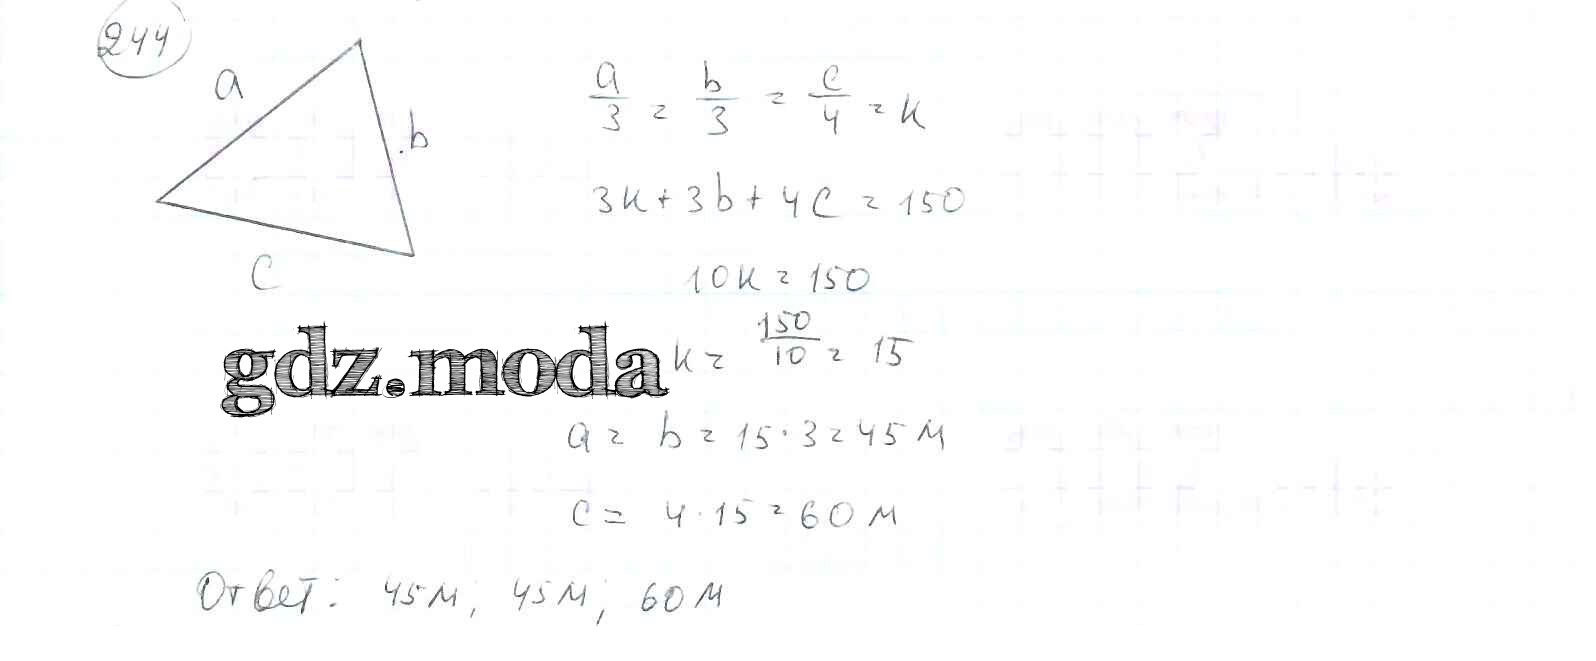 244
a
b
c
a/3 = b/3 = c/4 = k
3k + 3b + 4c = 150
10k = 150
gdz.moda
k = 150/10 = 15
a = b = 15 · 3 = 45 м
c = 4 · 15 = 60 м
Ответ: 45 м; 45 м; 60 м